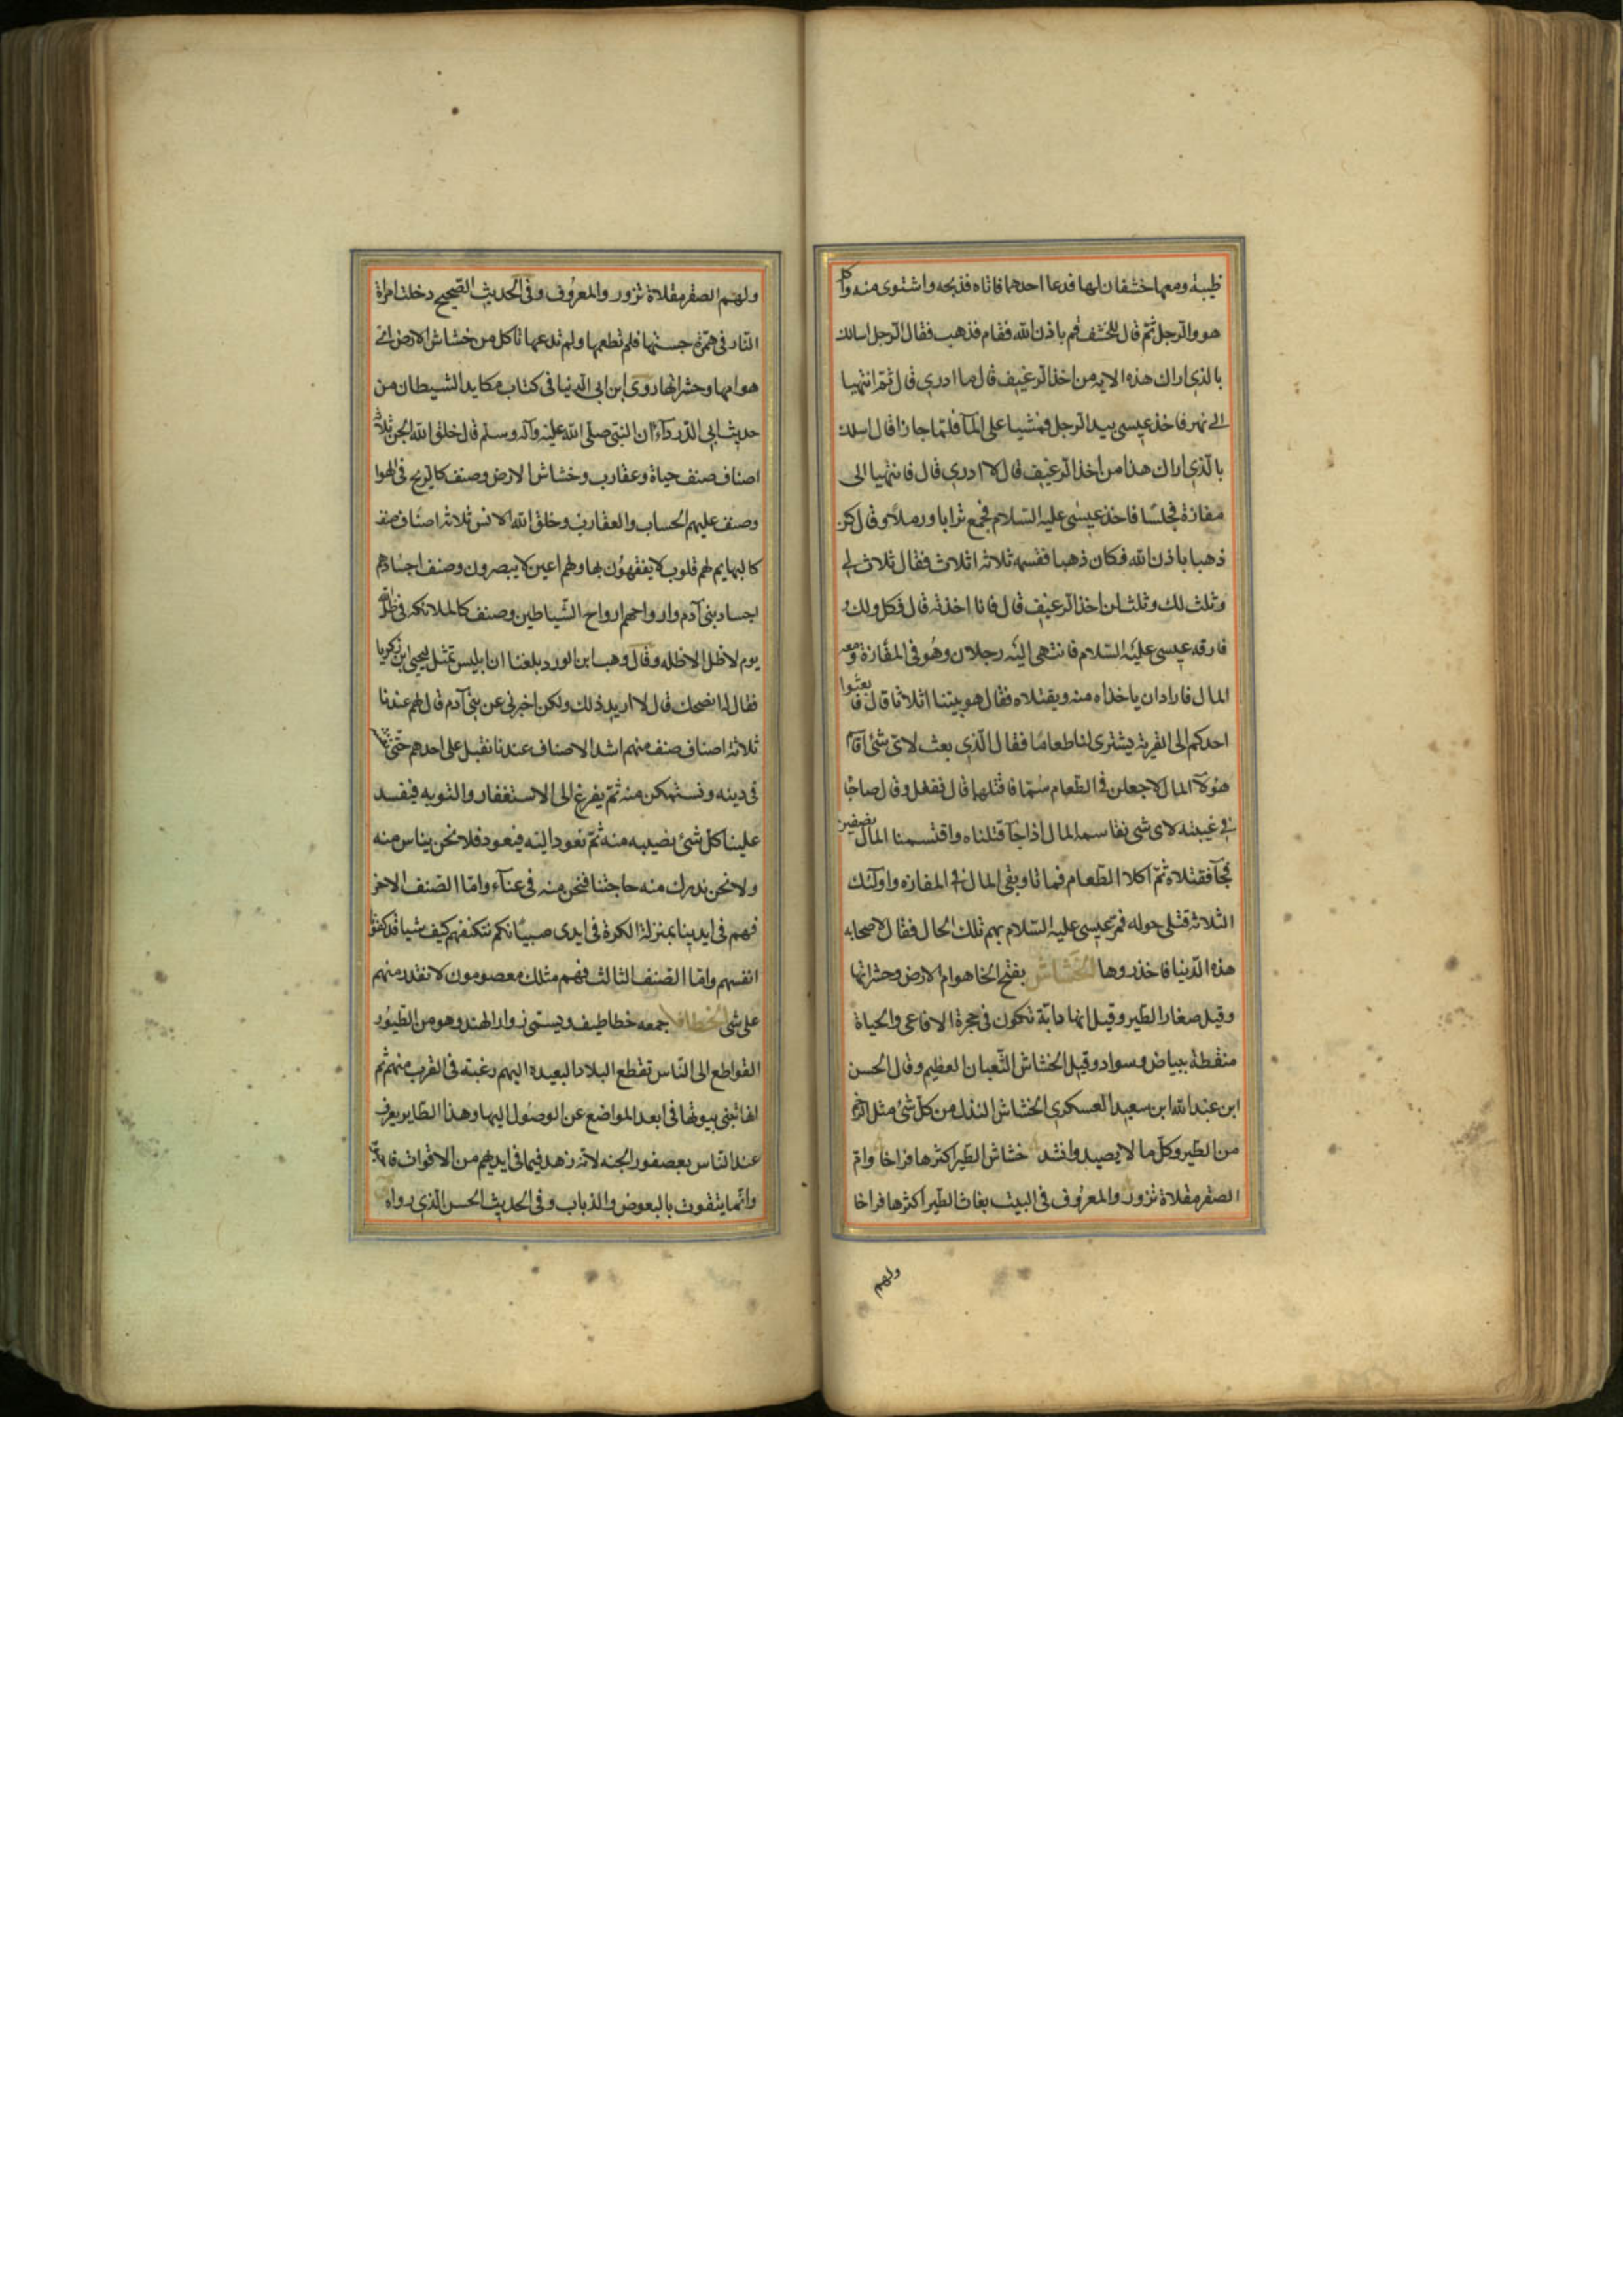 ظبية ومعها خشفان لها فدعا احدهما فاتاه فذبحه واشتوى منه واكل
هو والرجل ثم قال للخشف قم باذن الله فقام فذهب فقال الرجل اسالك
بالذي اراك هذه الايه من اخذ الرغيف قال ما ادري قال ثم انتهيا
الى نهر فاخذ عيسى بيد الرجل فمشيا على المآ فلما جازا قال اسلك
بالذي اراك هذا من اخذ الرغيف قال لا ادري قال فانتهيا الى
مفازة فجلسا فاخذ عيسى عليه السلام فجمع ترابا ورملا وقال كن
ذهبا باذن الله فكان ذهبا فقسمه ثلاثه اثلاث فقال ثلاث لي
وثلث لك وثلث لمن اخذ الرغيف قال فانا اخذته قال فكل ولك
فارقه عيسى عليه السلام فانتهى اليه رجلان وهو في المفازة ومعه
المال فارادا ان ياخذاه منه ويقتلاه فقال هو بيننا اثلاثا قال فابعثوا
احدكم الى القرية يشترى لنا طعاما فقال الذي بعث لاى شئ اقاسم
هؤلآ المال لاجعلن في الطعام سما فاقتلهما قال ففعل وقال صاحبا
في غيبته لاى شى نقاسمه المال اذا جآ قتلناه واقتسمنا المال نصفين
فجآ فقتلاه ثم اكلا الطعام فماتا وبقى المال في المفازه واولئك
الثلاثه قتلى حوله فمر عيسى عليه السلام بهم تلك الحال فقال لاصحابه
هذه الدنيا فاحذروها الخشاش بفتح الخا هوام الارض وحشراتها
وقيل صغار الطير وقيل انها دابة تكون في جحرة الافاعى والحياة
منقطة ببياض وسواد وقيل الخشاش الثعبان العظيم وقال الحسن
ابن عبد الله ابن سعيد العسكري الخشاش النذل من كل شئ مثل الرخم
من الطير وكل ما لا يصيد وانشد خشاش الطير اكثرها فراخا وام
الصقر مقلاة نزور والمعروف في البيت بغاث الطير اكثرها فراخا
ولهم
ولهم الصقر مقلاة نزور والمعروف وفي الحديث الصحيح دخلت امراة
النار في همرة حبستها فلم تطعمها ولم تدعها تاكل من خشاش الارض اي
هوامها وحشراتها روى ابن ابي الدنيا في كتاب مكايد الشيطان من
حديث ابي الدردآء ان النبي صلى الله عليه وآله وسلم قال خلق الله الجن ثلاثه
اصناف صنف حياة وعقارب وخشاش الارض وصنف كالريح في الهوا
وصنف عليهم الحساب والعقاب وخلق الله الانس ثلاثه اصناف صنف
كالبهايم لهم قلوب لا يفقهون بها ولهم اعين لا يبصرون وصنف اجسادهم
اجساد بني آدم وارواحهم ارواح الشياطين وصنف كالملائكه في ظل الله
يوم لا ظل الا ظله وقال وهب ابن الورد بلغنا ان ابليس تمثل ليحيى ابن زكريا
فقال له انصحك قال لا اريد ذلك ولكن اخبرني عن بني آدم قال هم عندنا
ثلاثة اصناف صنف منهم اشد الاصناف عندنا نقبل على احدهم حتى
في دينه ونستمكن منه ثم يفرغ الى الاستغفار والتوبه فيفسد
علينا كل شئ نصيبه منه ثم نعود اليه فيعود فلا نحن يناس منه
ولا نحن ندرك منه حاجتنا فنحن منه في عنآء واما الصنف الاخر
فهم في ايدينا بمنزلة الكرة في ايدى صبيانكم نتكنفهم كيف شيا قد كفونا
انفسهم واما الصنف الثالث فهم مثلك معصومون لا نقدر منهم
على شى الخطاف جمعه خطاطيف ويسمى زوار الهند وهو من الطيور
القواطع الى الناس تقطع البلاد البعيده اليهم رغبته في القرب منهم ثم
انها تبنى بيوتها في ابعد المواضع عن الوصول اليها وهذا الطاير يعرف
عند الناس بعصفور الجنه لانه زهد فيما في ايديهم من الاقوات
وانما يتقوت بالبعوض والذباب وفي الحديث الحسن الذي رواه